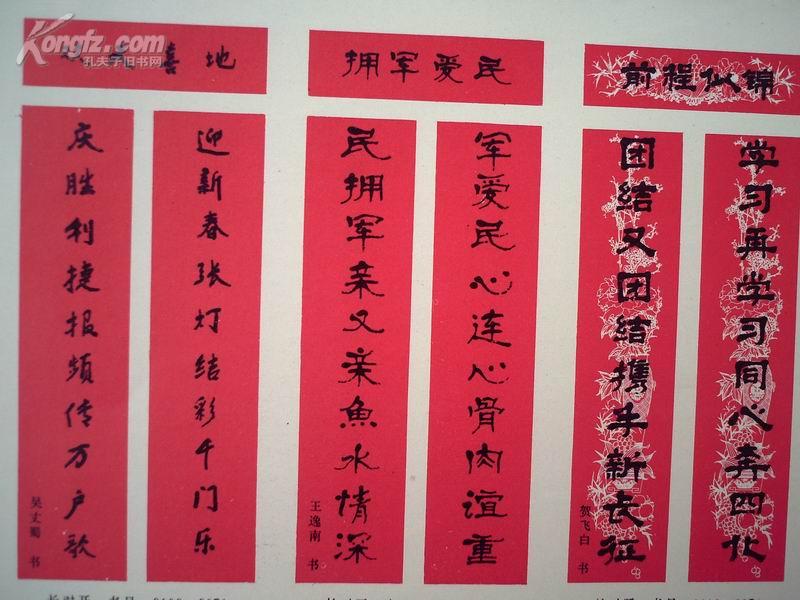 Kongfz.com
孔夫子旧书网
喜地
拥军爱民
前程似锦
迎新春张灯结彩千门乐
庆胜利捷报频传万户歌
吴丈蜀 书
军爱民心连心骨肉谊重
民拥军亲又亲鱼水情深
王逸南 书
学习再学习同心奔四化
团结又团结携手新长征
贺飞白 书